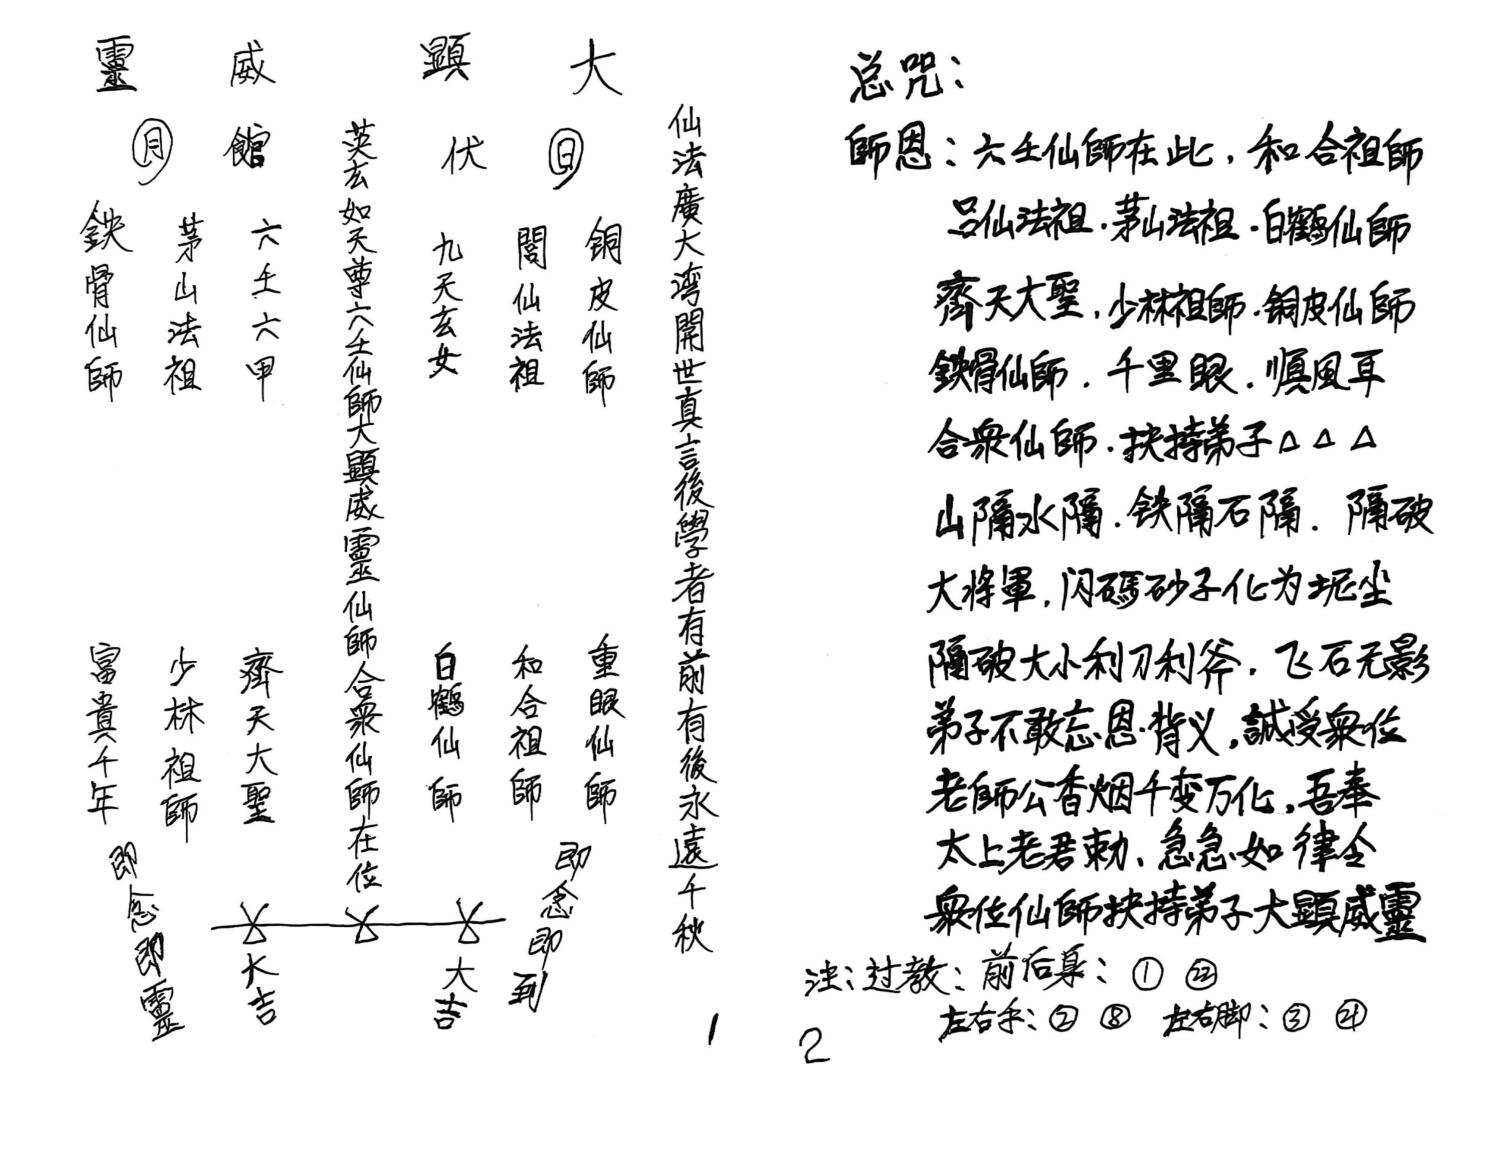 大顯威靈
伏館
日
月
仙法廣大湾開世真言後學者有前有後永遠千秋
銅皮仙師
閭仙法祖
九天玄女
英玄如天尊六壬仙師大顯威靈仙師合衆仙師在位
六壬六甲
茅山法祖
鉄骨仙師
重眼仙師
和合祖師
白鶴仙師
齊天大聖
少林祖師
富貴千年
即念即到
大吉
大吉
即念即靈
1
总咒：
師恩：六壬仙師在此，和合祖師
呂仙法祖·茅山法祖·白鶴仙師
齊天大聖，少林祖師·銅皮仙師
鉄骨仙師．千里眼．順風耳
合衆仙師．扶持弟子△△△
山隔水隔．铁隔石隔．隔破
大將軍，闪碼砂子化为坭尘
隔破大小利刀利斧，飞石无影
弟子不敢忘恩背义，誠受衆位
老師公香烟千变万化，吾奉
太上老君勅、急急如律令
衆位仙師扶持弟子大顕威靈
注：过教：前后身：① ㉒
左右手：② ⑧ 左右脚：③ ㉑
2